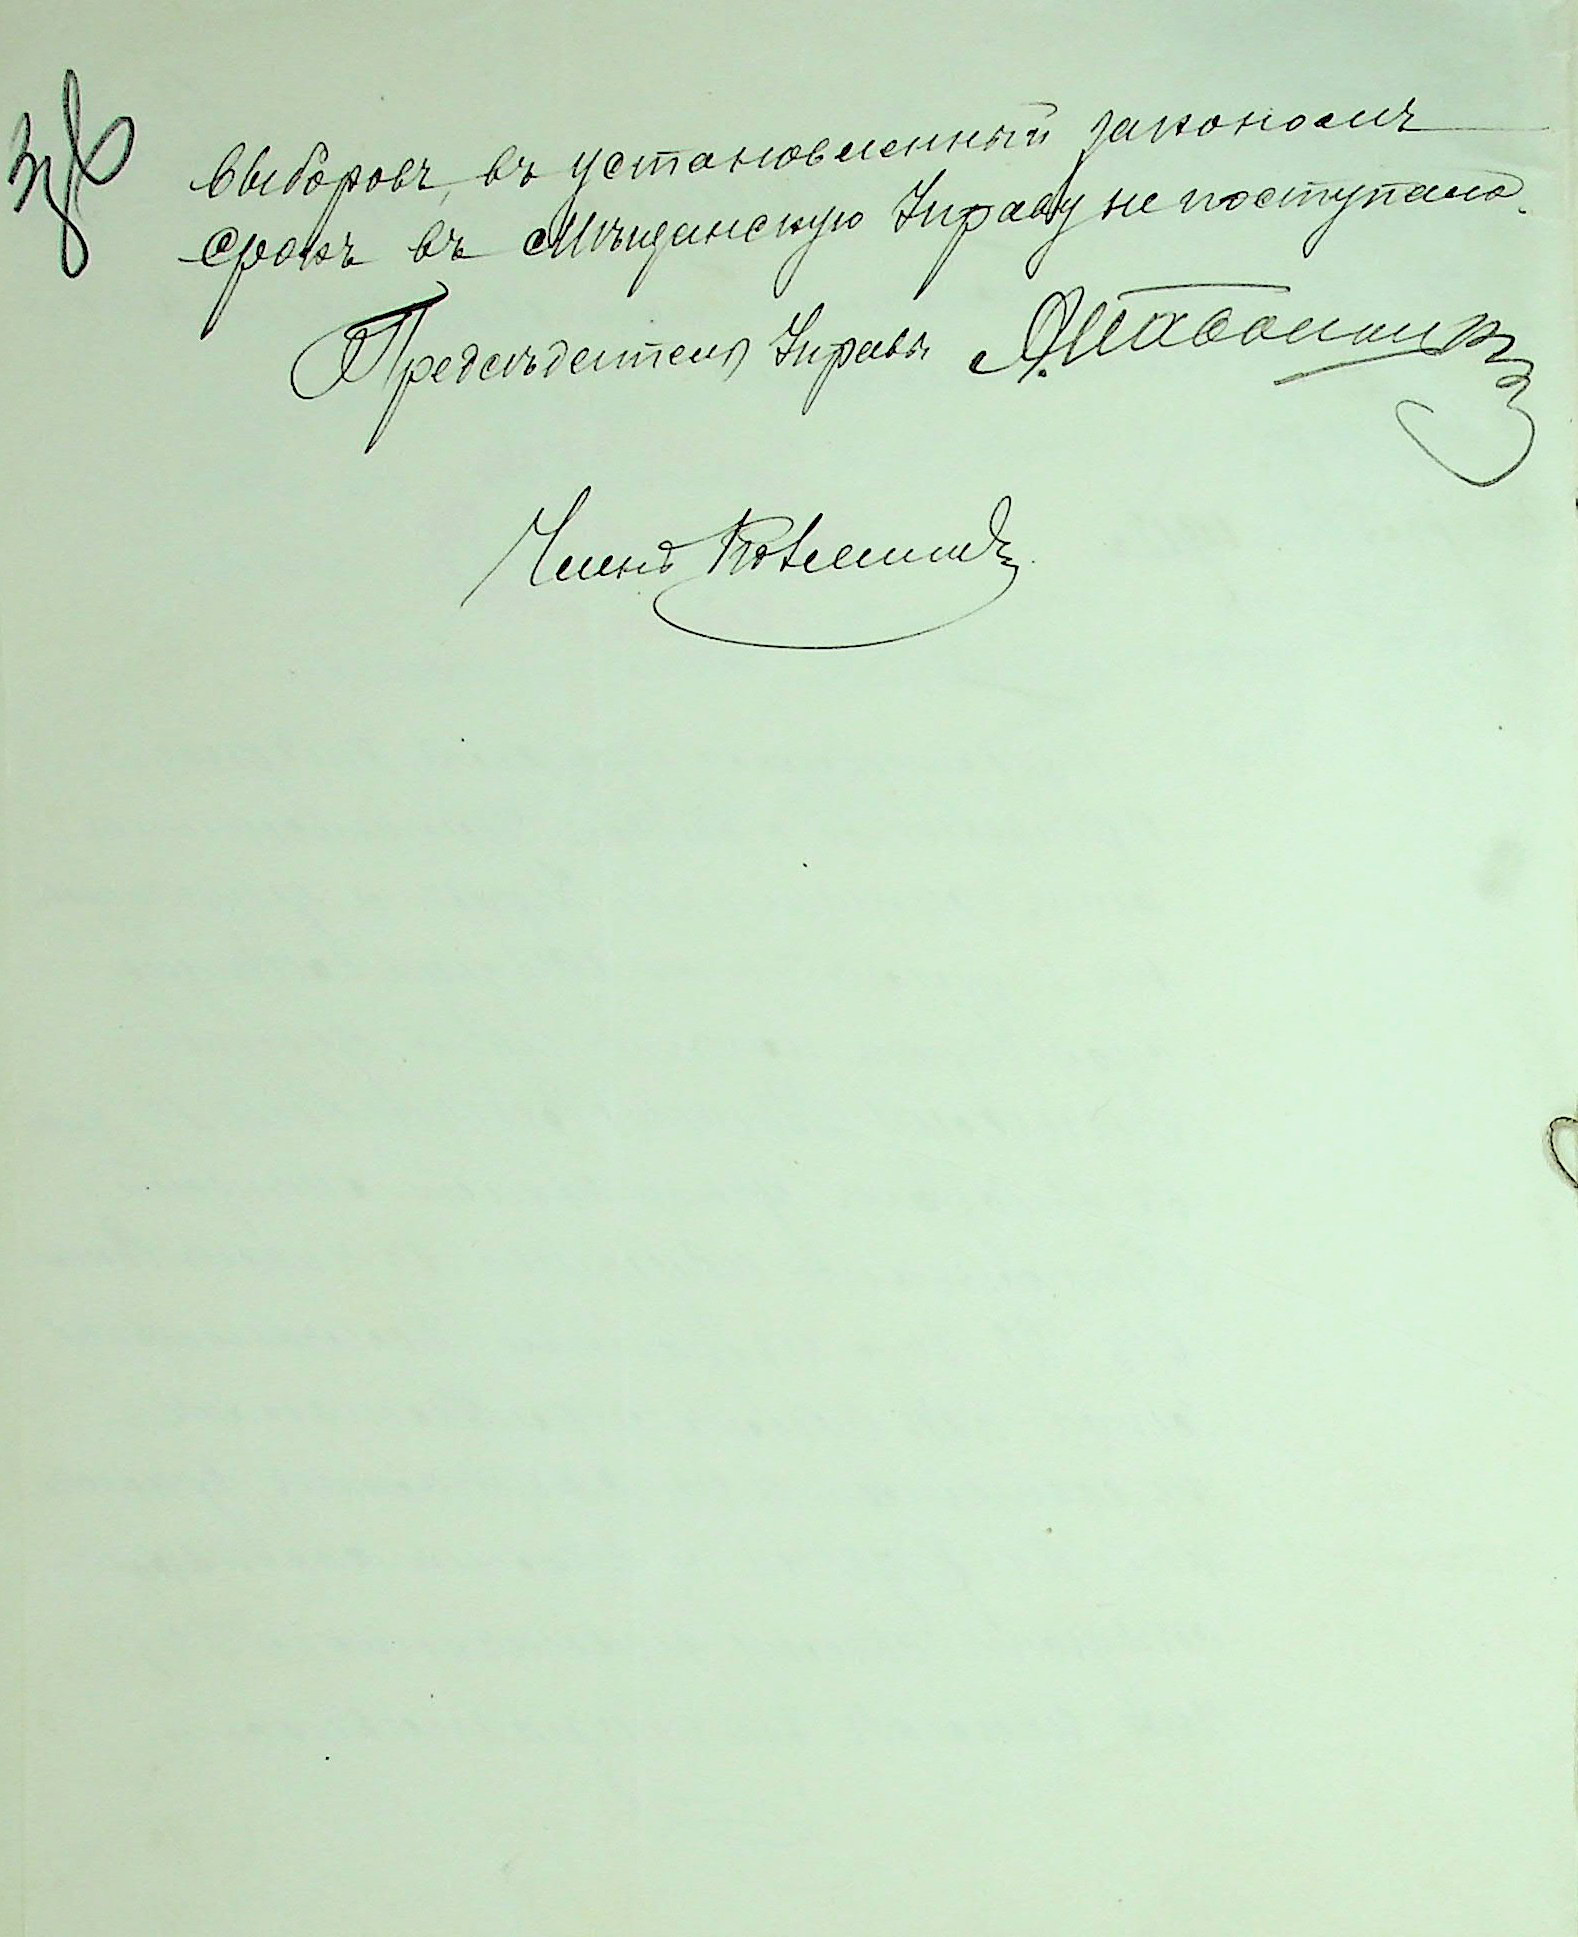 выборовъ, въ установленный закономъ
срокъ въ Мѣщанскую Управу не поступало.
Предсѣдатель Управы
Членъ